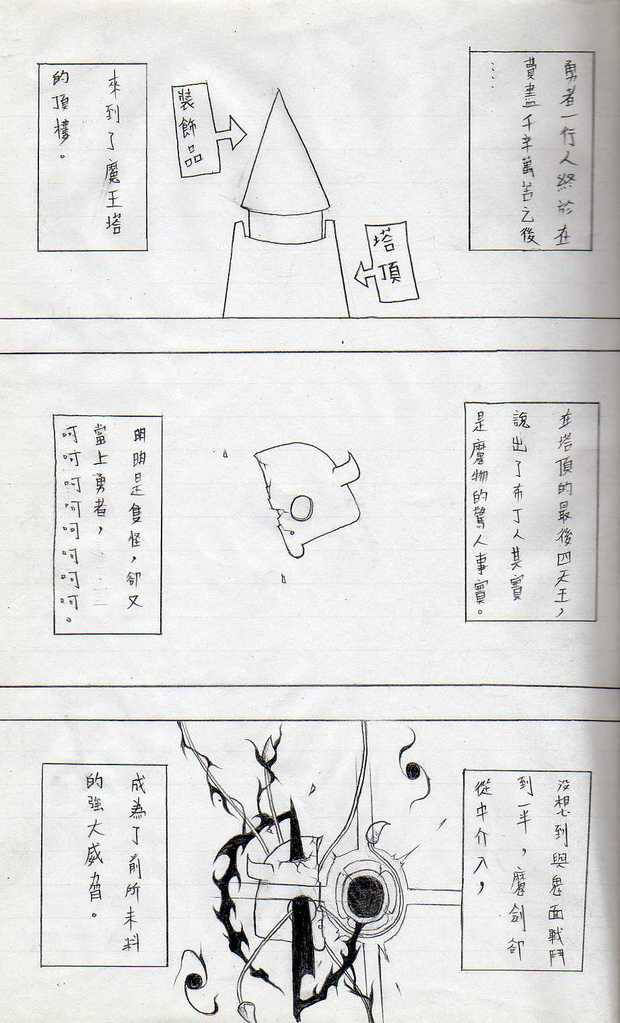 勇者一行人終於在
費盡千辛萬苦之後
……
裝飾品
塔頂
來到了魔王塔
的頂樓。
在塔頂的最後四天王，
說出了布丁人其實
是魔物的驚人事實。
明明是隻怪，卻又
當上勇者，
呵呵呵呵呵呵呵呵。
沒想到與鬼面戰鬥
到一半，魔劍卻
從中介入，
成為了前所未料
的強大威脅。